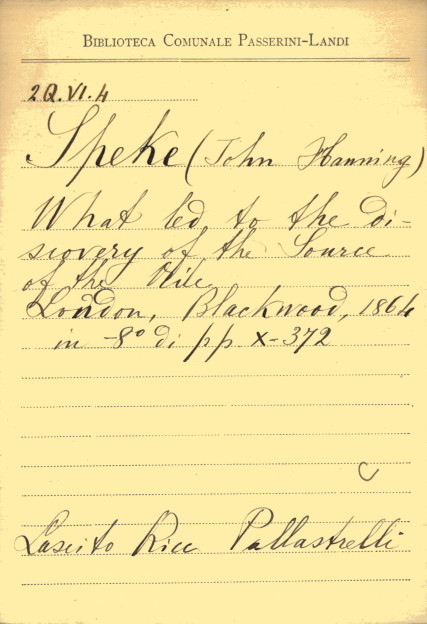 BIBLIOTECA COMUNALE PASSERINI-LANDI
2Q.VI.4
Speke (John Hanning)
What led to the di-
scovery of the Source
of the Nile
London, Blackwood, 1864
in -8° di pp X-372
C
Lascito Ricc Pallastrelli